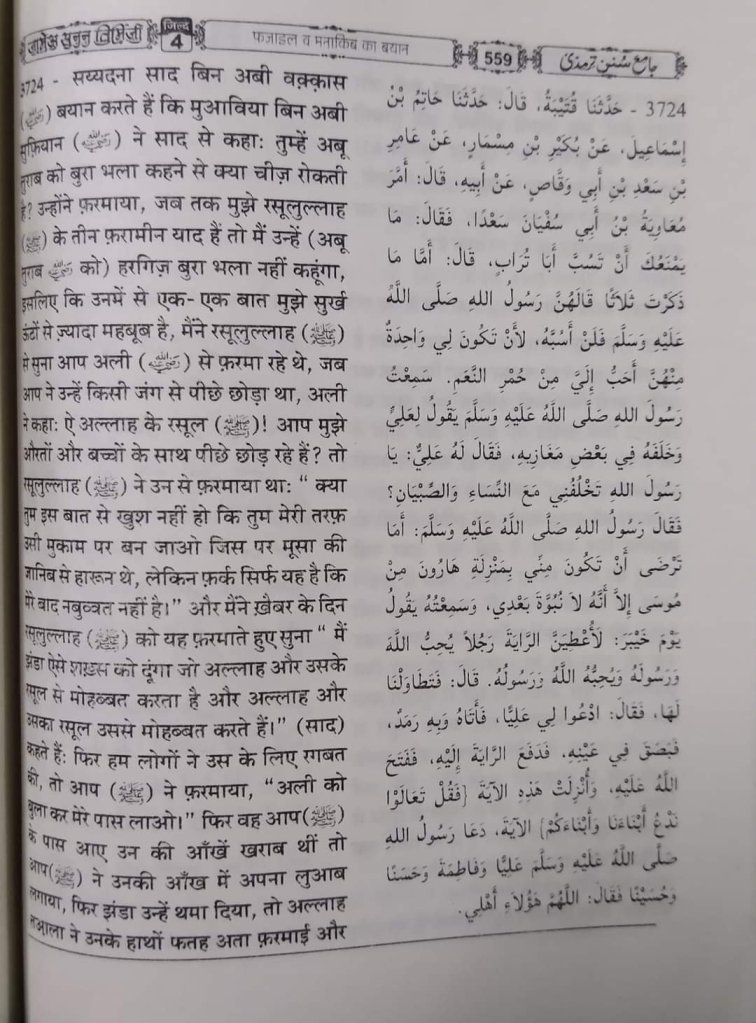 जामेअ सुनन तिर्मिज़ी
जिल्द
4
फज़ाइल व मनाकिब का बयान
559
جامع سُنن ترمذی
3724 - सय्यदना साद बिन अबी वक़्क़ास
(رضي الله عنه) बयान करते हैं कि मुआविया बिन अबी
सुफ़ियान (رضي الله عنه) ने साद से कहा: तुम्हें अबू
तुराब को बुरा भला कहने से क्या चीज़ रोकती
है? उन्होंने फ़रमाया, जब तक मुझे रसूलुल्लाह
(ﷺ) के तीन फ़रामीन याद हैं तो मैं उन्हें (अबू
तुराब رضي الله عنه को) हरगिज़ बुरा भला नहीं कहूंगा,
इसलिए कि उनमें से एक- एक बात मुझे सुर्ख
ऊंटों से ज़्यादा महबूब है, मैंने रसूलुल्लाह (ﷺ)
से सुना आप अली (رضي الله عنه) से फ़रमा रहे थे, जब
आप ने उन्हें किसी जंग से पीछे छोड़ा था, अली
ने कहा: ऐ अल्लाह के रसूल (ﷺ)! आप मुझे
औरतों और बच्चों के साथ पीछे छोड़ रहे हैं? तो
रसूलुल्लाह (ﷺ) ने उन से फ़रमाया था: “ क्या
तुम इस बात से खुश नहीं हो कि तुम मेरी तरफ़
उसी मुकाम पर बन जाओ जिस पर मूसा की
जानिब से हारून थे, लेकिन फ़र्क सिर्फ यह है कि
मेरे बाद नबुव्वत नहीं है।” और मैंने ख़ैबर के दिन
रसूलुल्लाह (ﷺ) को यह फ़रमाते हुए सुना “ मैं
झंडा ऐसे शख़्स को दूंगा जो अल्लाह और उसके
रसूल से मोहब्बत करता है और अल्लाह और
उसका रसूल उससे मोहब्बत करते हैं।” (साद)
कहते हैं: फिर हम लोगों ने उस के लिए रगबत
की, तो आप (ﷺ) ने फ़रमाया, “अली को
बुला कर मेरे पास लाओ।” फिर वह आप(ﷺ)
के पास आए उन की आँखें खराब थीं तो
आप(ﷺ) ने उनकी आँख में अपना लुआब
लगाया, फिर झंडा उन्हें थमा दिया, तो अल्लाह
तआ़ला ने उनके हाथों फतह अता फ़रमाई और
3724 - حَدَّثَنَا قُتَيْبَةُ، قَالَ: حَدَّثَنَا حَاتِمُ بْنُ
إِسْمَاعِيلَ، عَنْ بُكَيْرِ بْنِ مِسْمَارٍ، عَنْ عَامِرِ
بْنِ سَعْدِ بْنِ أَبِي وَقَّاصٍ، عَنْ أَبِيهِ، قَالَ: أَمَّرَ
مُعَاوِيَةُ بْنُ أَبِي سُفْيَانَ سَعْدًا، فَقَالَ: مَا
يَمْنَعُكَ أَنْ تَسُبَّ أَبَا تُرَابٍ، قَالَ: أَمَّا مَا
ذَكَرْتَ ثَلَاثًا قَالَهُنَّ رَسُولُ اللهِ صَلَّى اللَّهُ
عَلَيْهِ وَسَلَّمَ فَلَنْ أَسُبَّهُ، لأَنْ تَكُونَ لِي وَاحِدَةٌ
مِنْهُنَّ أَحَبُّ إِلَيَّ مِنْ حُمْرِ النَّعَمِ. سَمِعْتُ
رَسُولَ اللهِ صَلَّى اللَّهُ عَلَيْهِ وَسَلَّمَ يَقُولُ لِعَلِيٍّ
وَخَلَفَهُ فِي بَعْضِ مَغَازِيهِ، فَقَالَ لَهُ عَلِيٌّ: يَا
رَسُولَ اللهِ تَخْلُفُنِي مَعَ النِّسَاءِ وَالصِّبْيَانِ؟
فَقَالَ رَسُولُ اللهِ صَلَّى اللَّهُ عَلَيْهِ وَسَلَّمَ: أَمَا
تَرْضَى أَنْ تَكُونَ مِنِّي بِمَنْزِلَةِ هَارُونَ مِنْ
مُوسَى إِلاَّ أَنَّهُ لَا نُبُوَّةَ بَعْدِي، وَسَمِعْتُهُ يَقُولُ
يَوْمَ خَيْبَرَ: لَأُعْطِيَنَّ الرَّايَةَ رَجُلاً يُحِبُّ اللَّهَ
وَرَسُولَهُ وَيُحِبُّهُ اللَّهُ وَرَسُولُهُ. قَالَ: فَتَطَاوَلْنَا
لَهَا، فَقَالَ: ادْعُوا لِي عَلِيًّا، فَأَتَاهُ وَبِهِ رَمَدٌ،
فَبَصَقَ فِي عَيْنِهِ، فَدَفَعَ الرَّايَةَ إِلَيْهِ، فَفَتَحَ
اللَّهُ عَلَيْهِ، وَأُنْزِلَتْ هَذِهِ الآيَةَ {فَقُلْ تَعَالَوْا
نَدْعُ أَبْنَاءَنَا وَأَبْنَاءَكُمْ} الآيَةَ، دَعَا رَسُولُ اللهِ
صَلَّى اللَّهُ عَلَيْهِ وَسَلَّمَ عَلِيًّا وَفَاطِمَةَ وَحَسَنًا
وَحُسَيْنًا فَقَالَ: اللَّهُمَّ هَؤُلَاءِ أَهْلِي.